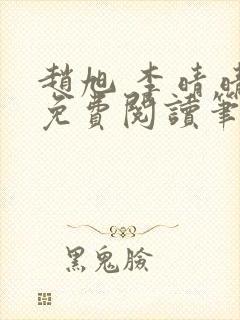 趙旭 李晴晴
免費閱讀筆
黑鬼臉